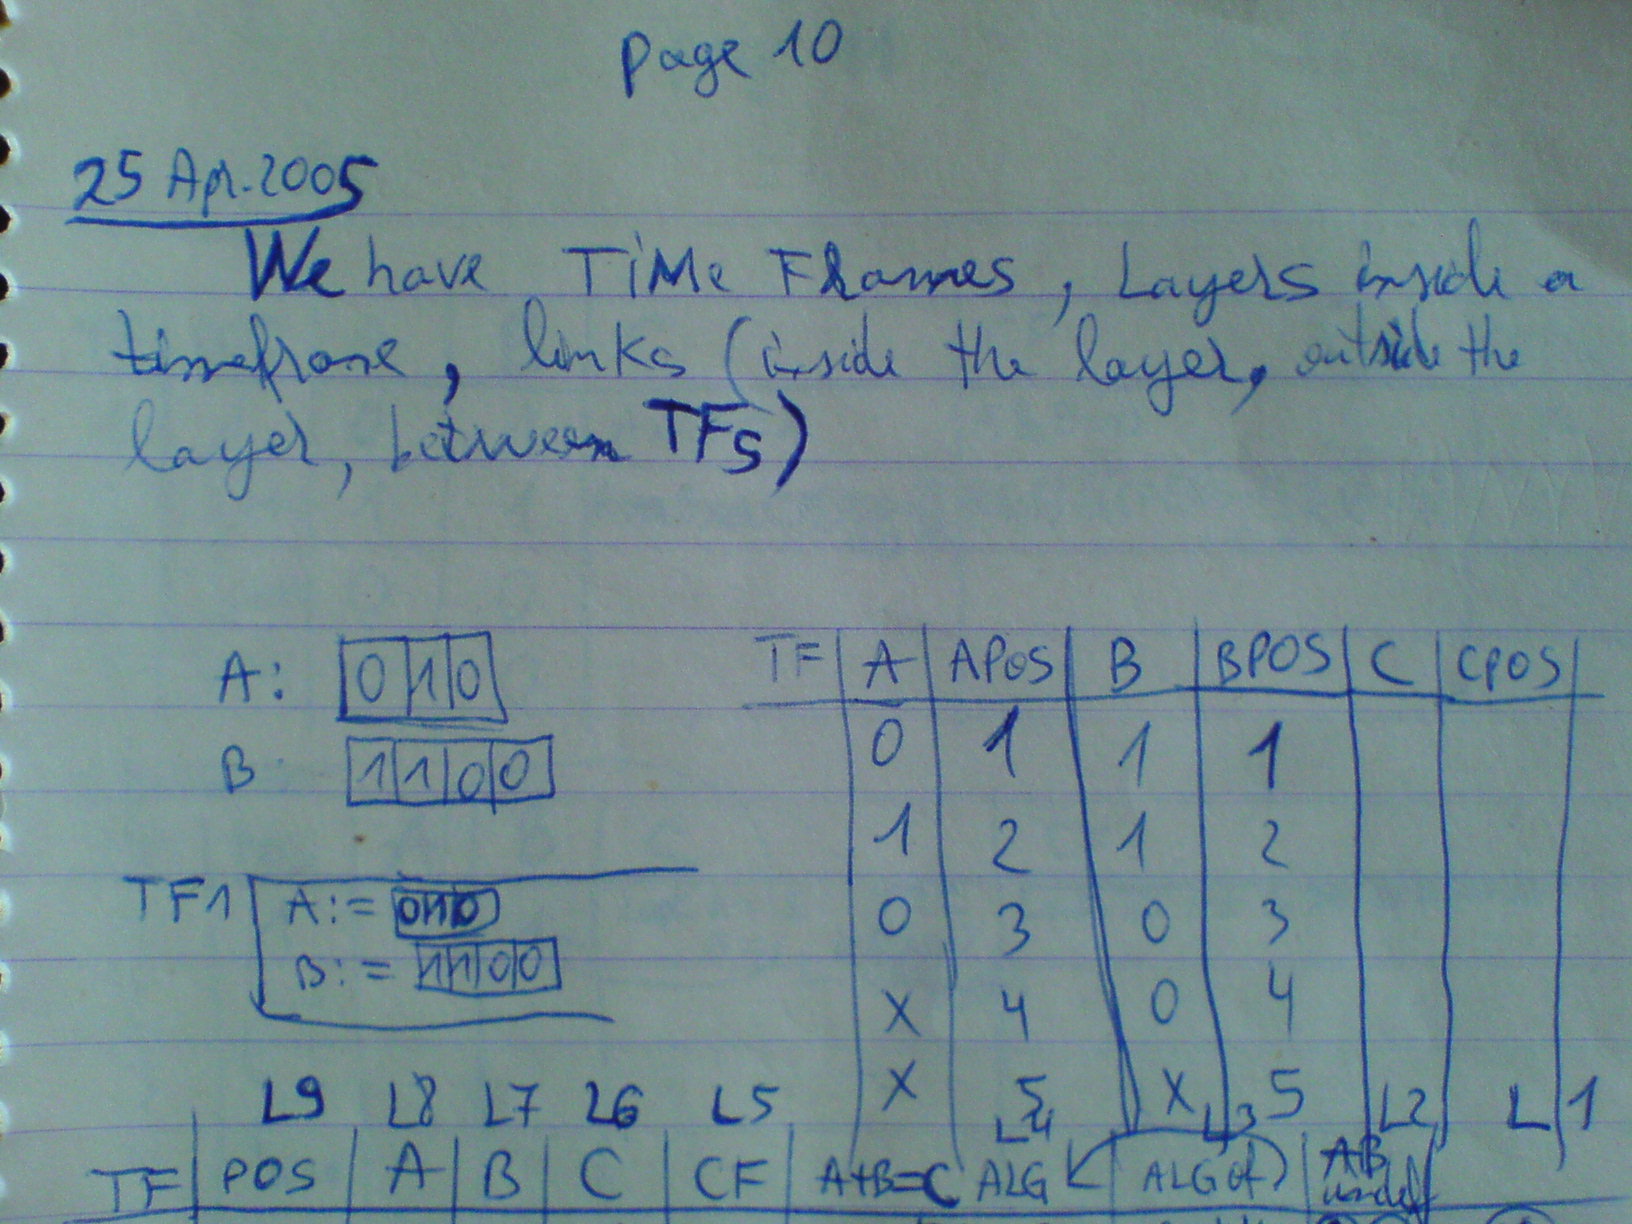 page 10
25 Apr. 2005
We have TiMe Frames, Layers inside a
timeframe, links (inside the layer, outside the
layer, between TFs)
A: 0 1 0
B: 1 1 0 0
TF1 A:= 0 1 0
B:= 1 1 0 0
TF A APOS B BPOS C CPOS
0 1 1 1
1 2 1 2
0 3 0 3
X 4 0 4
X 5 X 5
L9 L8 L7 L6 L5 L4 L3 L2 L1
TF POS A B C CF A+B=C ALG ALG of A+B undef